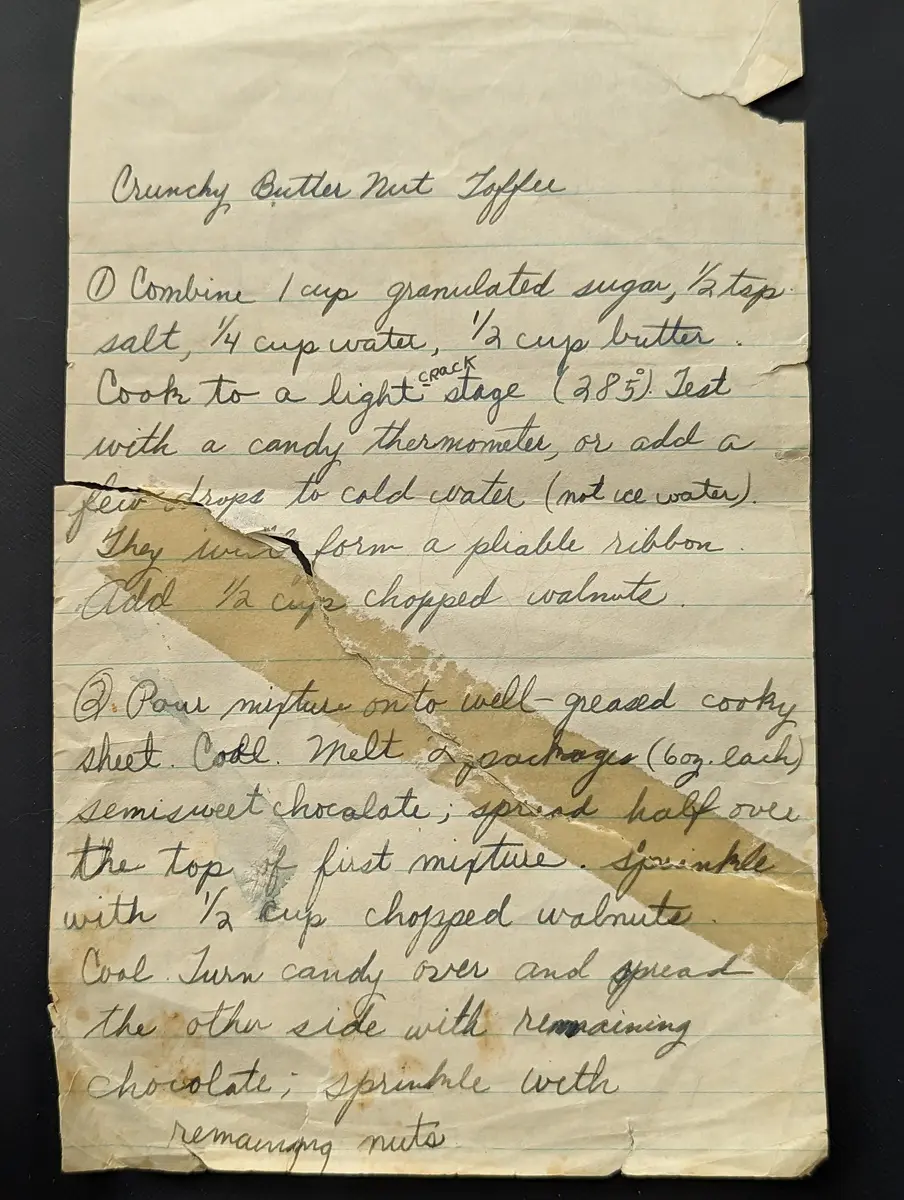 Crunchy Butter Nut Toffee
① Combine 1 cup granulated sugar, 1/2 tsp.
salt, 1/4 cup water, 1/2 cup butter.
Cook to a light crack stage (285°). Test
with a candy thermometer, or add a
few drops to cold water (not ice water).
They will form a pliable ribbon.
Add 1/2 cup chopped walnuts.
② Pour mixture on to well-greased cooky
sheet. Cool. Melt 2 packages (6oz. each)
semisweet chocalate; spread half over
the top of first mixture. Sprinkle
with 1/2 cup chopped walnuts.
Cool. Turn candy over and spread
the other side with remaining
chocolate; sprinkle with
remaining nuts.